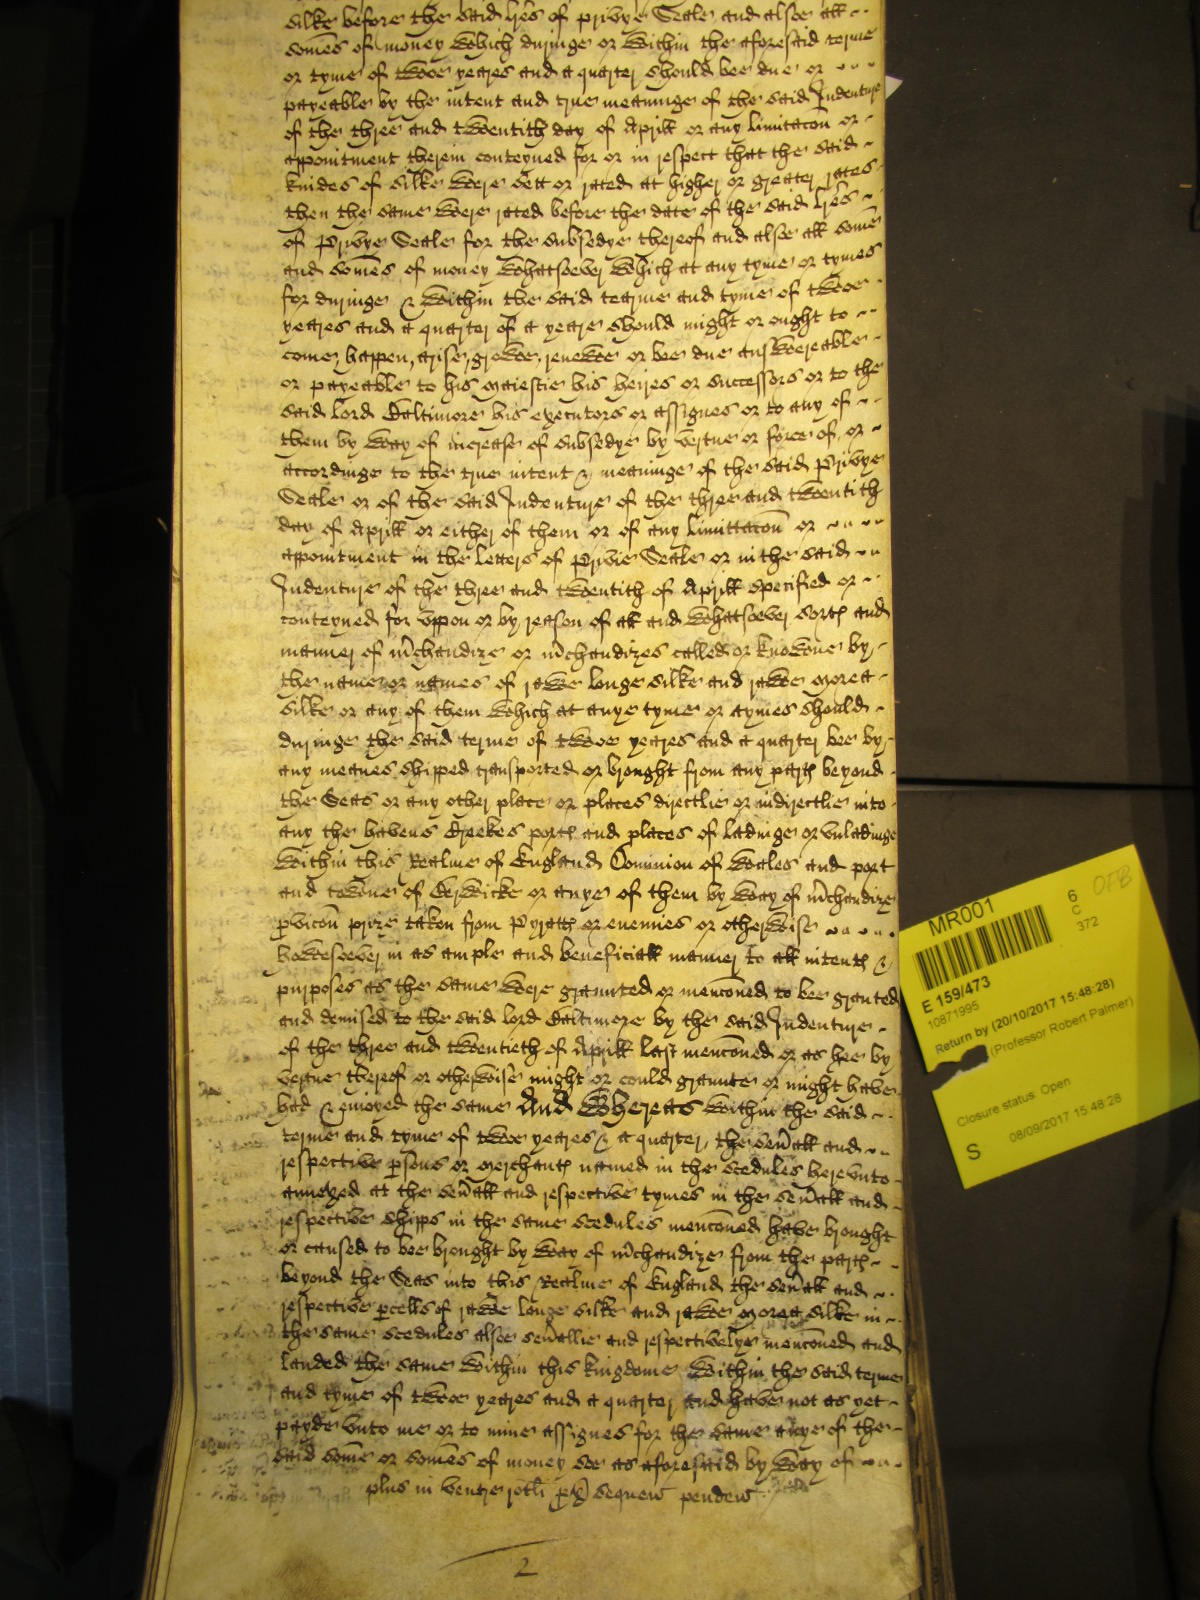 silke before the said lres of privye Seale and alsoe all
somes of money which duringe or within the aforesaid terme
or tyme of twoe yeares and a quarter should bee due or
payeable by the intent and true meaninge of the said Indenture
of the three and twentith day of Aprill or any limitacon or
appointment therein conteyned for or in respect that the said
kindes of silke were sett or rated at higher or greater rates
then the same were rated before the date of the said lres
of privye Seale for the subsedye thereof and alsoe all some
and somes of money whatsoever which at any tyme or tymes
for duringe & within the said tearme and tyme of twoe
yeares and a quarter of a yeare should might or ought to
come, happen, arise, growe, renewe or bee due answereable
or payeable to his Maiestie his heires or successors or to the
said lord Baltimore his executors or assignes or to any of
them by way of increase of subsedye by vertue or force of, or
accordinge to the true intent & meaninge of the said Privye
Seale or of the said Indenture of the three and twentith
day of Aprill or either of them or of any limittacon or
appointment in the letters of Privie Seale or in the said
Indenture of the three and twentith of Aprill specified or
conteyned for vppon or by reason of all and whatsoever sortes and
manner of mchandize or mchandizes called or knowne by
the name or names of rawe longe silke and rawe morea
silke or any of them which at anye tyme or tymes should
duringe the said terme of twoe yeares and a quarter bee by
any meanes shipped transported or brought from any partes beyond
the Seas or any other place or places directlie or indirectlie into
any the havens Creekes portes and places of ladinge or vnladinge
within this Realme of England Dominion of Wales and port
and towne of Berwicke or anye of them by way of mchandize
pvicon prize taken from Pyrates or enemies or otherwise
howesoever in as ample and beneficiall manner to all intentes &
purposes as the same were graunted or menconed to bee granted
and demised to the said lord Baltimore by the said Indenture
of the three and twentieth of Aprill last menconed or as hee by
vertue thereof or otherwise might or could graunte or might have
had & enioyed the same And Whereas within the said
terme and tyme of twoe yeares & a quarter, the sevall and
respective psons or Merchantes named in the scedules herevnto
annexed at the sevall and respective tymes in the sevall and
respective shipps in the same scedules menconed have brought
or caused to bee brought by way of mchandize from the partes
beyond the Seas into this Realme of England the sevall and
respective pcells of rawe longe silke and rawe morea silke in
the same scedules alsoe sevallie and respectivelye menconed and
landed the same within this kingdome within the said terme
and tyme of twoe yeares and a quarter and have not as yet
payde vnto me or to mine assignes for the same anye of the
said some or somes of money soe as aforesaid by way of
plus in ventre rotli px sequen penden
2
MR001
6
C
372
OFB
E 159/473
10871995
Return by (20/10/2017 15:48:28)
(Professor Robert Palmer)
Closure status: Open
S
08/09/2017 15:48:28